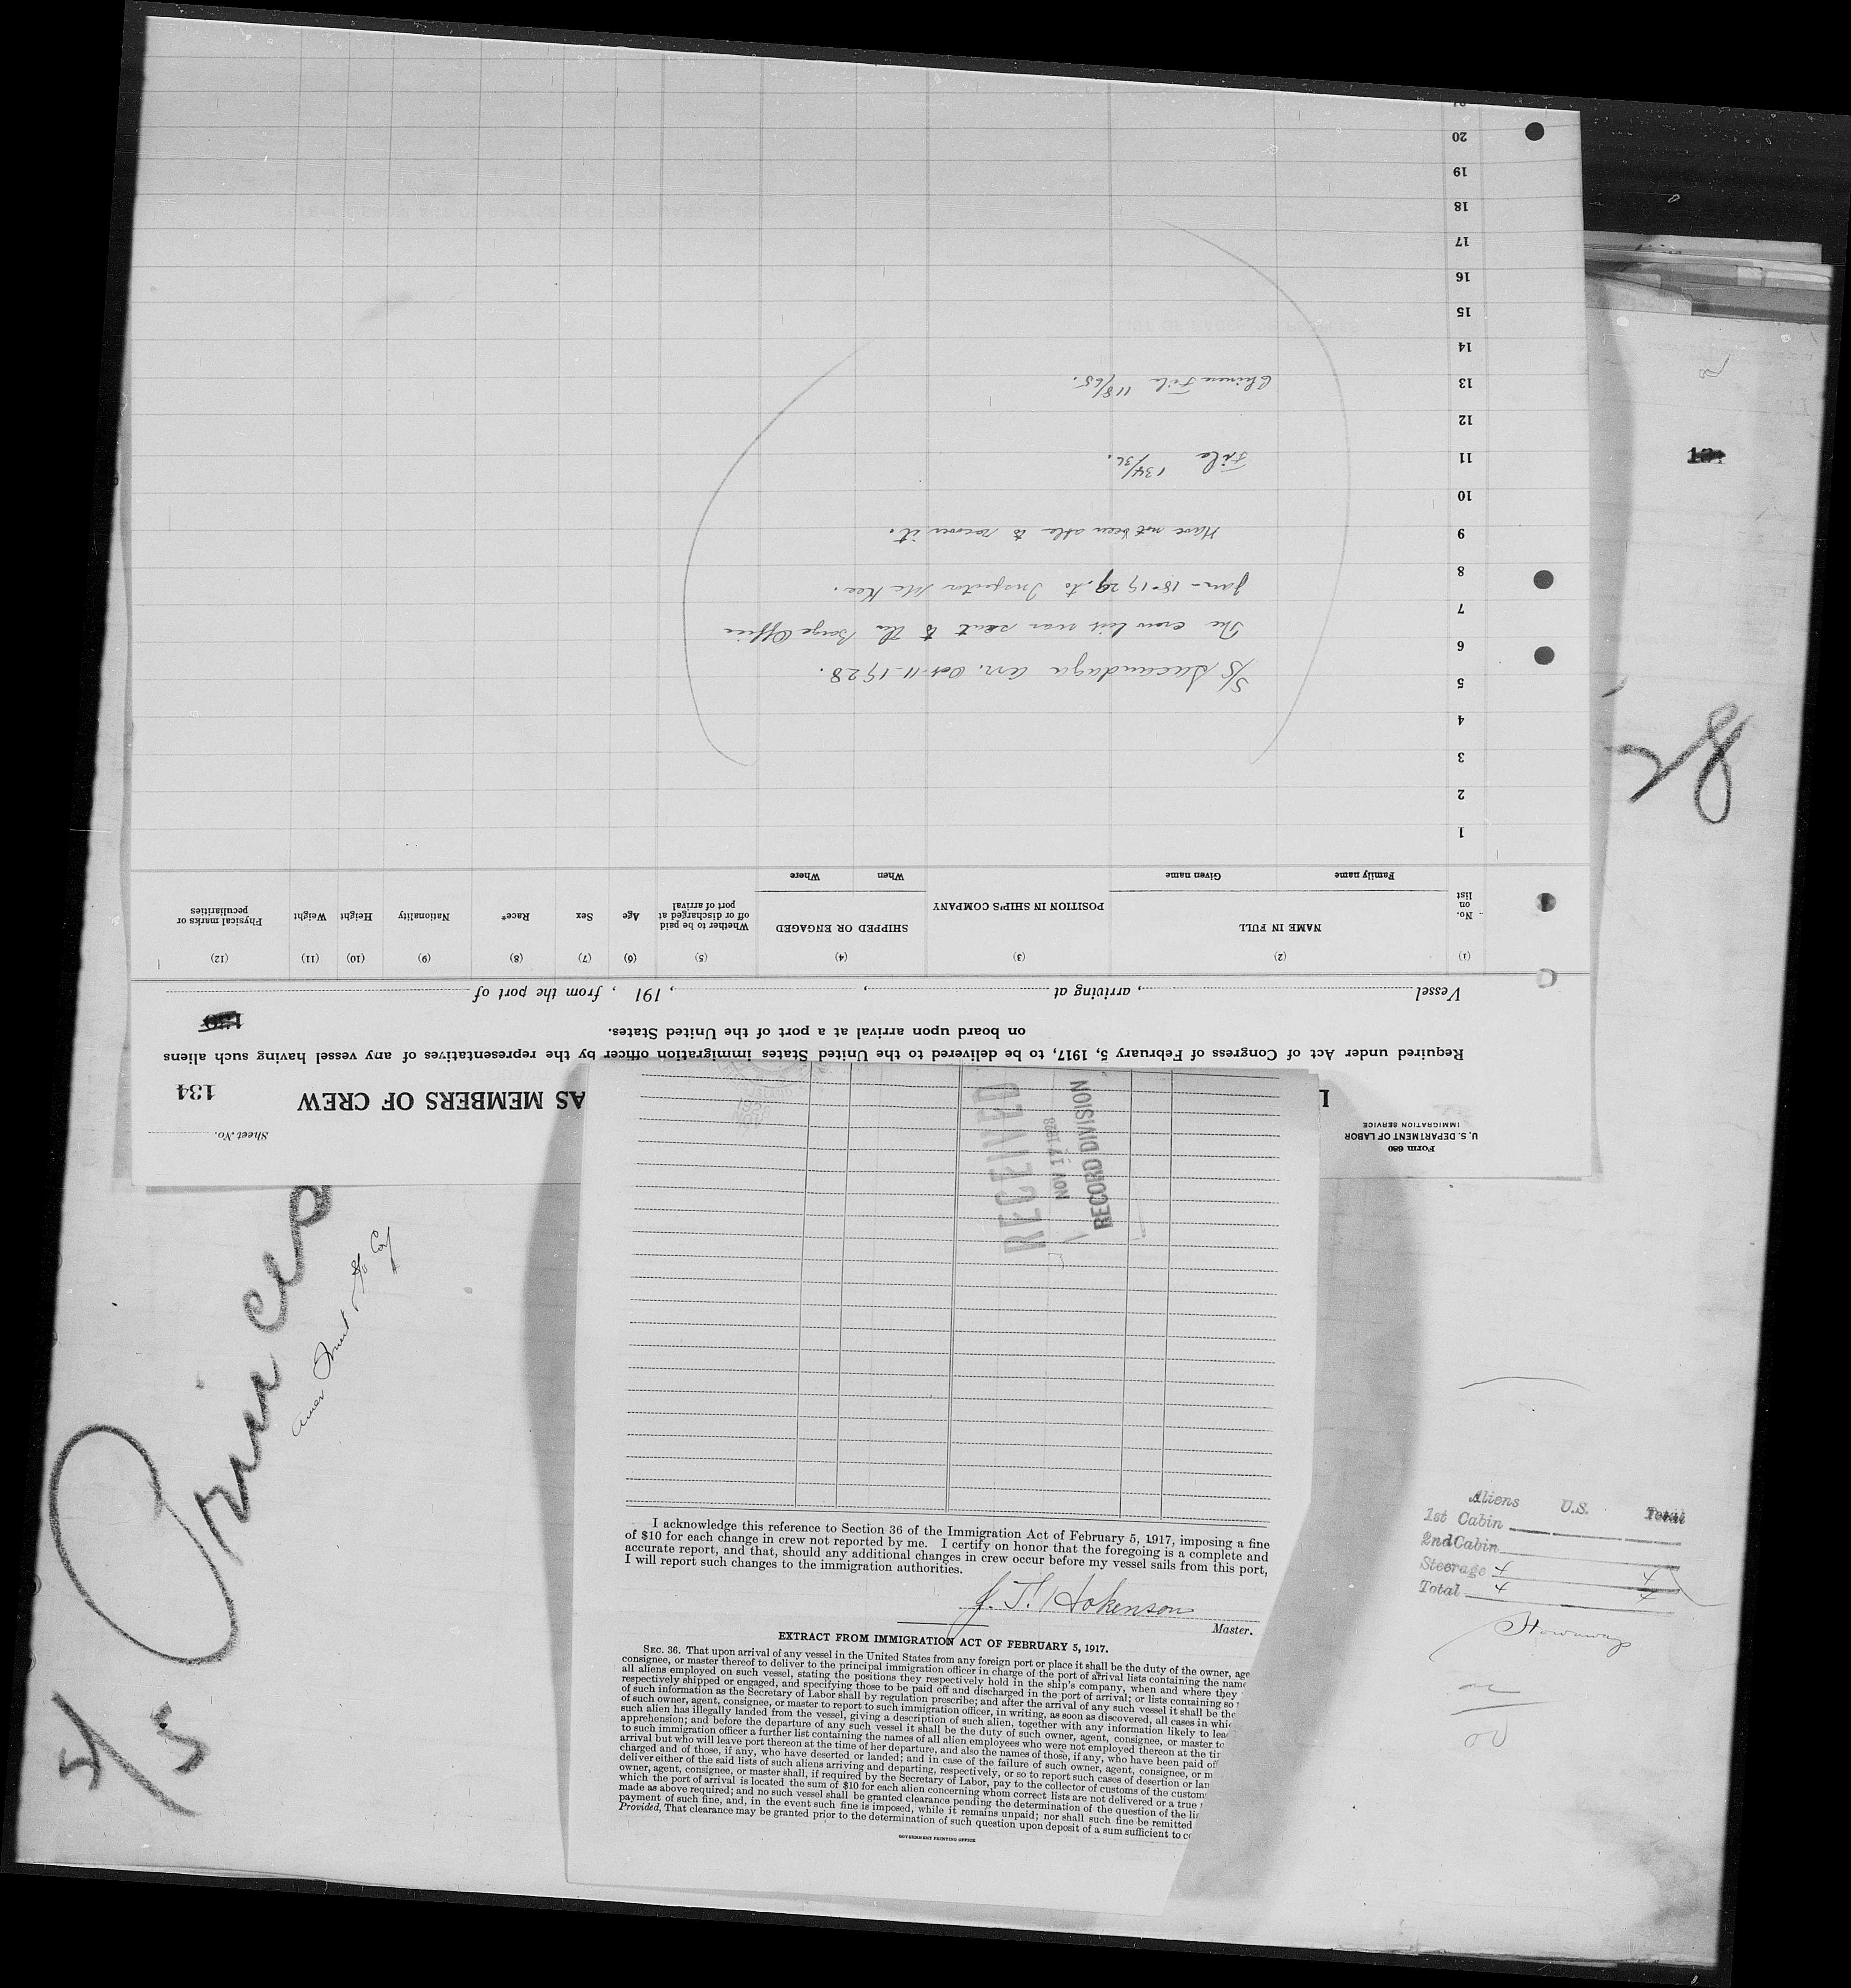 Form 680
U. S. DEPARTMENT OF LABOR
IMMIGRATION SERVICE
Sheet No.
AS MEMBERS OF CREW
134
Required under Act of Congress of February 5, 1917, to be delivered to the United States immigration officer by the representatives of any vessel having such aliens
on board upon arrival at a port of the United States.
Vessel , arriving at , , 191 , from the port of
(1) (2) (3) (4) (5) (6) (7) (8) (9) (10) (11) (12)
No. on list
NAME IN FULL
Family name Given name
POSITION IN SHIP'S COMPANY
SHIPPED OR ENGAGED
When Where
Whether to be paid off or discharged at port of arrival
Age
Sex
Race*
Nationality
Height
Weight
Physical marks or peculiarities
1
2
3
4
5 S/S Sacandaga arr. Oct-11-1928.
6 The crew list was sent to the Barge Office
7
8 Jan-18-1929. to Inspector McKee.
9 Have not been able to recover it.
10
11 File 134/36.
12
13 Chinese File 118/65.
14
15
16
17
18
19
20
21
28
RECEIVED
NOV 17 1928
RECORD DIVISION
I acknowledge this reference to Section 36 of the Immigration Act of February 5, 1917, imposing a fine
of $10 for each change in crew not reported by me. I certify on honor that the foregoing is a complete and
accurate report, and that, should any additional changes in crew occur before my vessel sails from this port,
I will report such changes to the immigration authorities.
J. T. Hokenson
Master.
EXTRACT FROM IMMIGRATION ACT OF FEBRUARY 5, 1917.
SEC. 36. That upon arrival of any vessel in the United States from any foreign port or place it shall be the duty of the owner, age
consignee, or master thereof to deliver to the principal immigration officer in charge of the port of arrival lists containing the name
all aliens employed on such vessel, stating the positions they respectively hold in the ship's company, when and where they
respectively shipped or engaged, and specifying those to be paid off and discharged in the port of arrival; or lists containing so
of such information as the Secretary of Labor shall by regulation prescribe; and after the arrival of any such vessel it shall be the
of such owner, agent, consignee, or master to report to such immigration officer, in writing, as soon as discovered, all cases in whi
such alien has illegally landed from the vessel, giving a description of such alien, together with any information likely to lea
apprehension; and before the departure of any such vessel it shall be the duty of such owner, agent, consignee, or master to
to such immigration officer a further list containing the names of all alien employees who were not employed thereon at the ti
arrival but who will leave port thereon at the time of her departure, and also the names of those, if any, who have been paid of
charged and of those, if any, who have deserted or landed; and in case of the failure of such owner, agent, consignee, or m
deliver either of the said lists of such aliens arriving and departing, respectively, or so to report such cases of desertion or lan
owner, agent, consignee, or master shall, if required by the Secretary of Labor, pay to the collector of customs of the custom
which the port of arrival is located the sum of $10 for each alien concerning whom correct lists are not delivered or a true
made as above required; and no such vessel shall be granted clearance pending the determination of the question of the li
payment of such fine, and, in the event such fine is imposed, while it remains unpaid; nor shall such fine be remitted
Provided, That clearance may be granted prior to the determination of such question upon deposit of a sum sufficient to co
GOVERNMENT PRINTING OFFICE
S/S
Aliens U.S. Total
1st Cabin
2nd Cabin
Steerage 4 4
Total 4 4
Stowaways